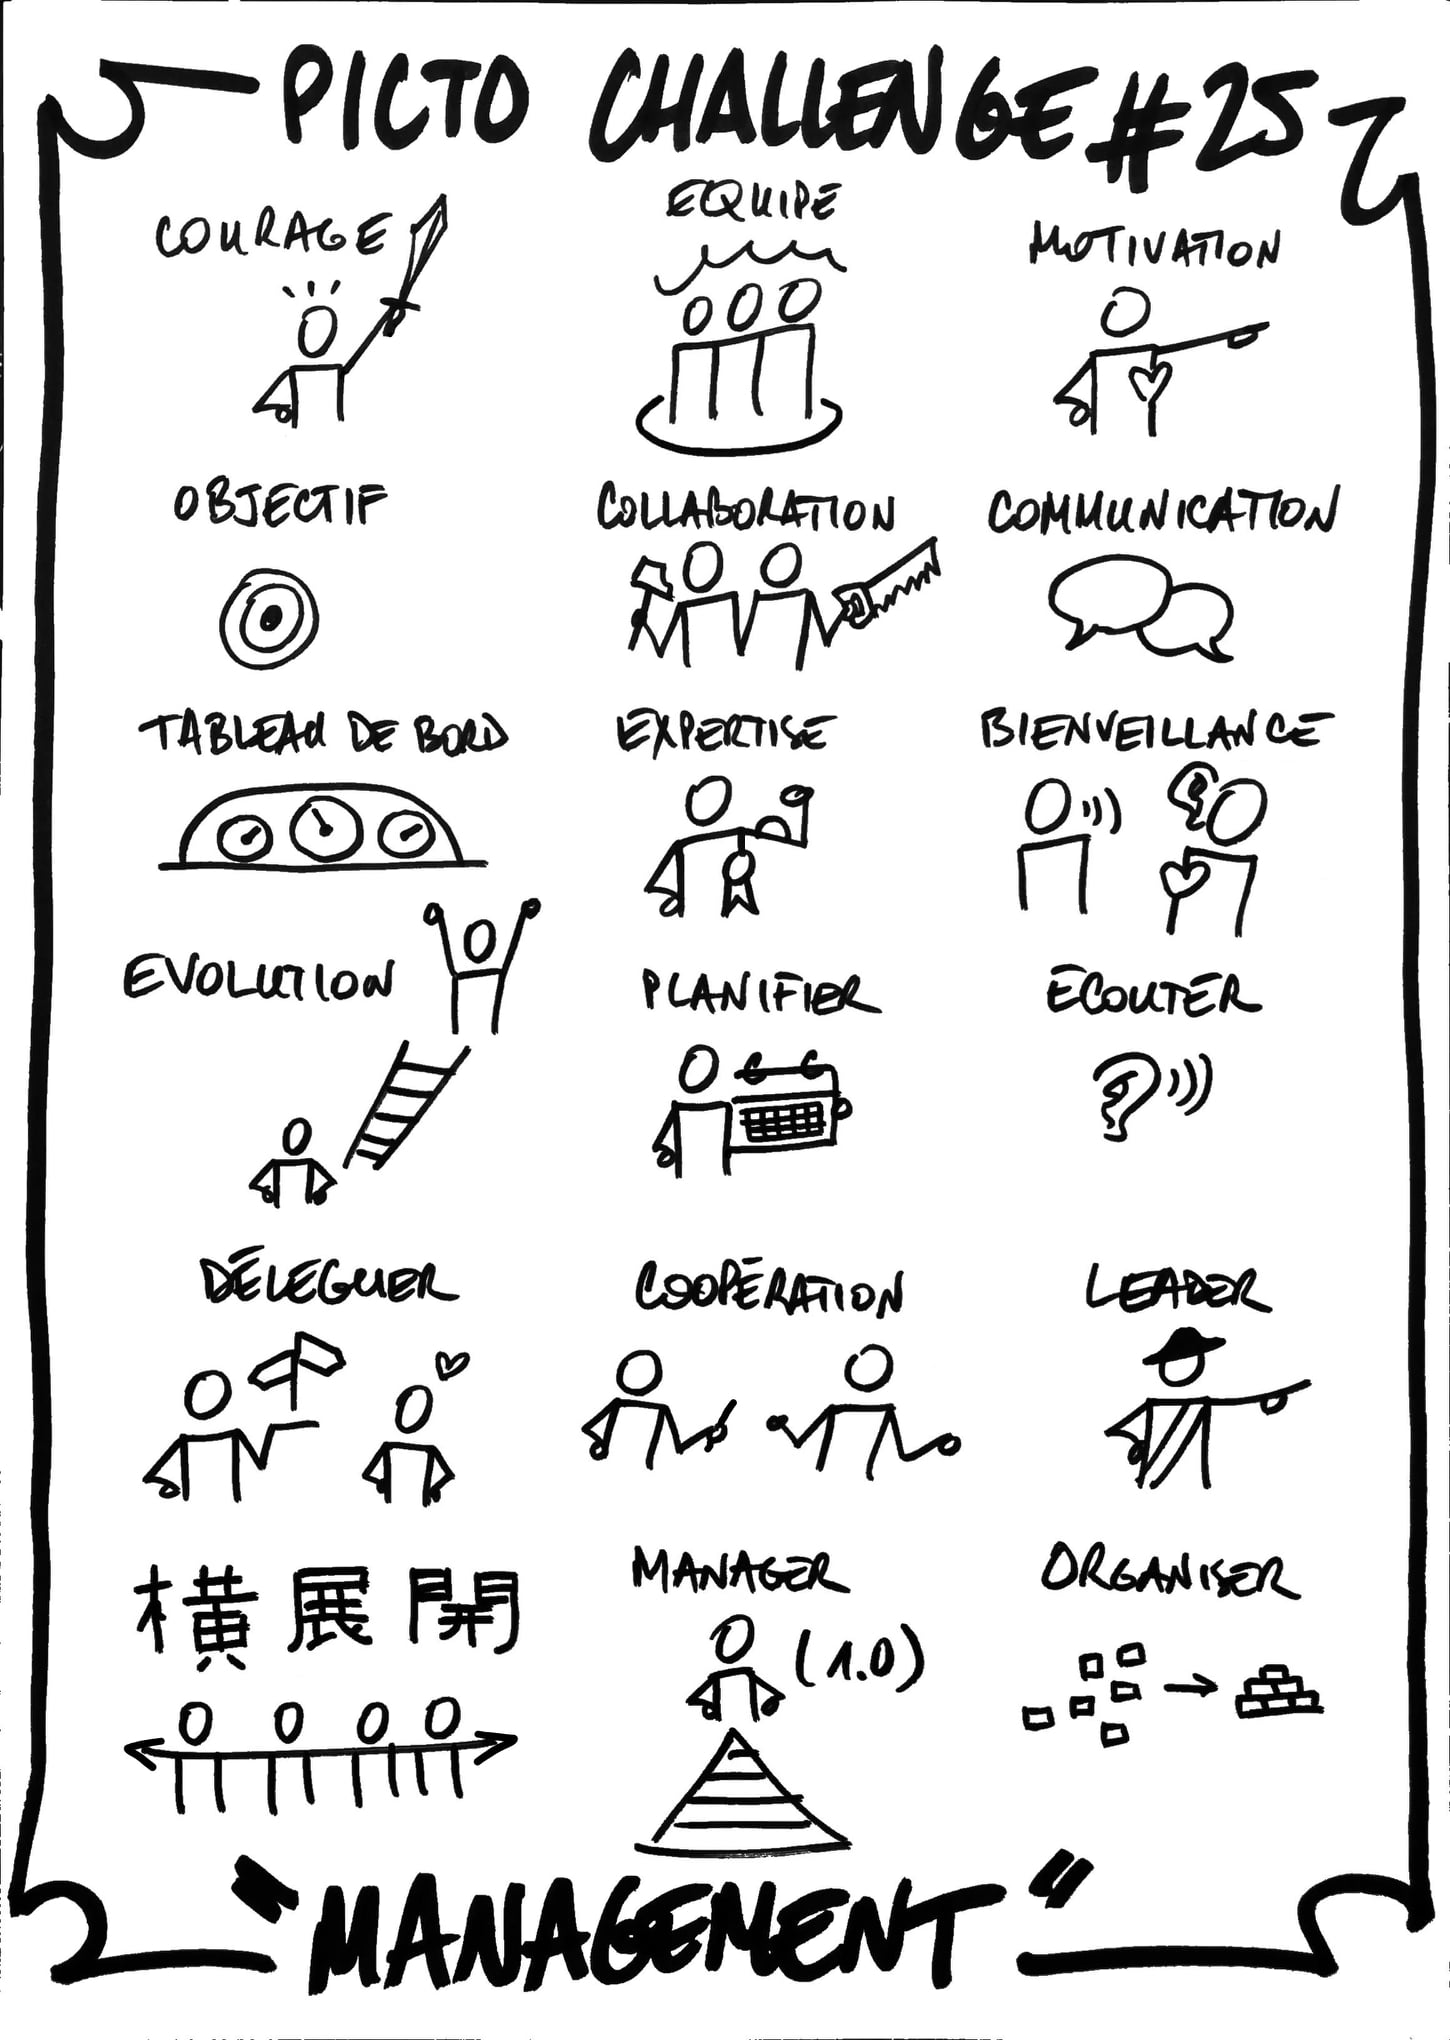 PICTO CHALLENGE #25
COURAGE
EQUIPE
MOTIVATION
OBJECTIF
COLLABORATION
COMMUNICATION
TABLEAU DE BORD
EXPERTISE
BIENVEILLANCE
EVOLUTION
PLANIFIER
ÉCOUTER
DÉLEGUER
COOPÉRATION
LEADER
横展開
MANAGER
(1.0)
ORGANISER
"MANAGEMENT"